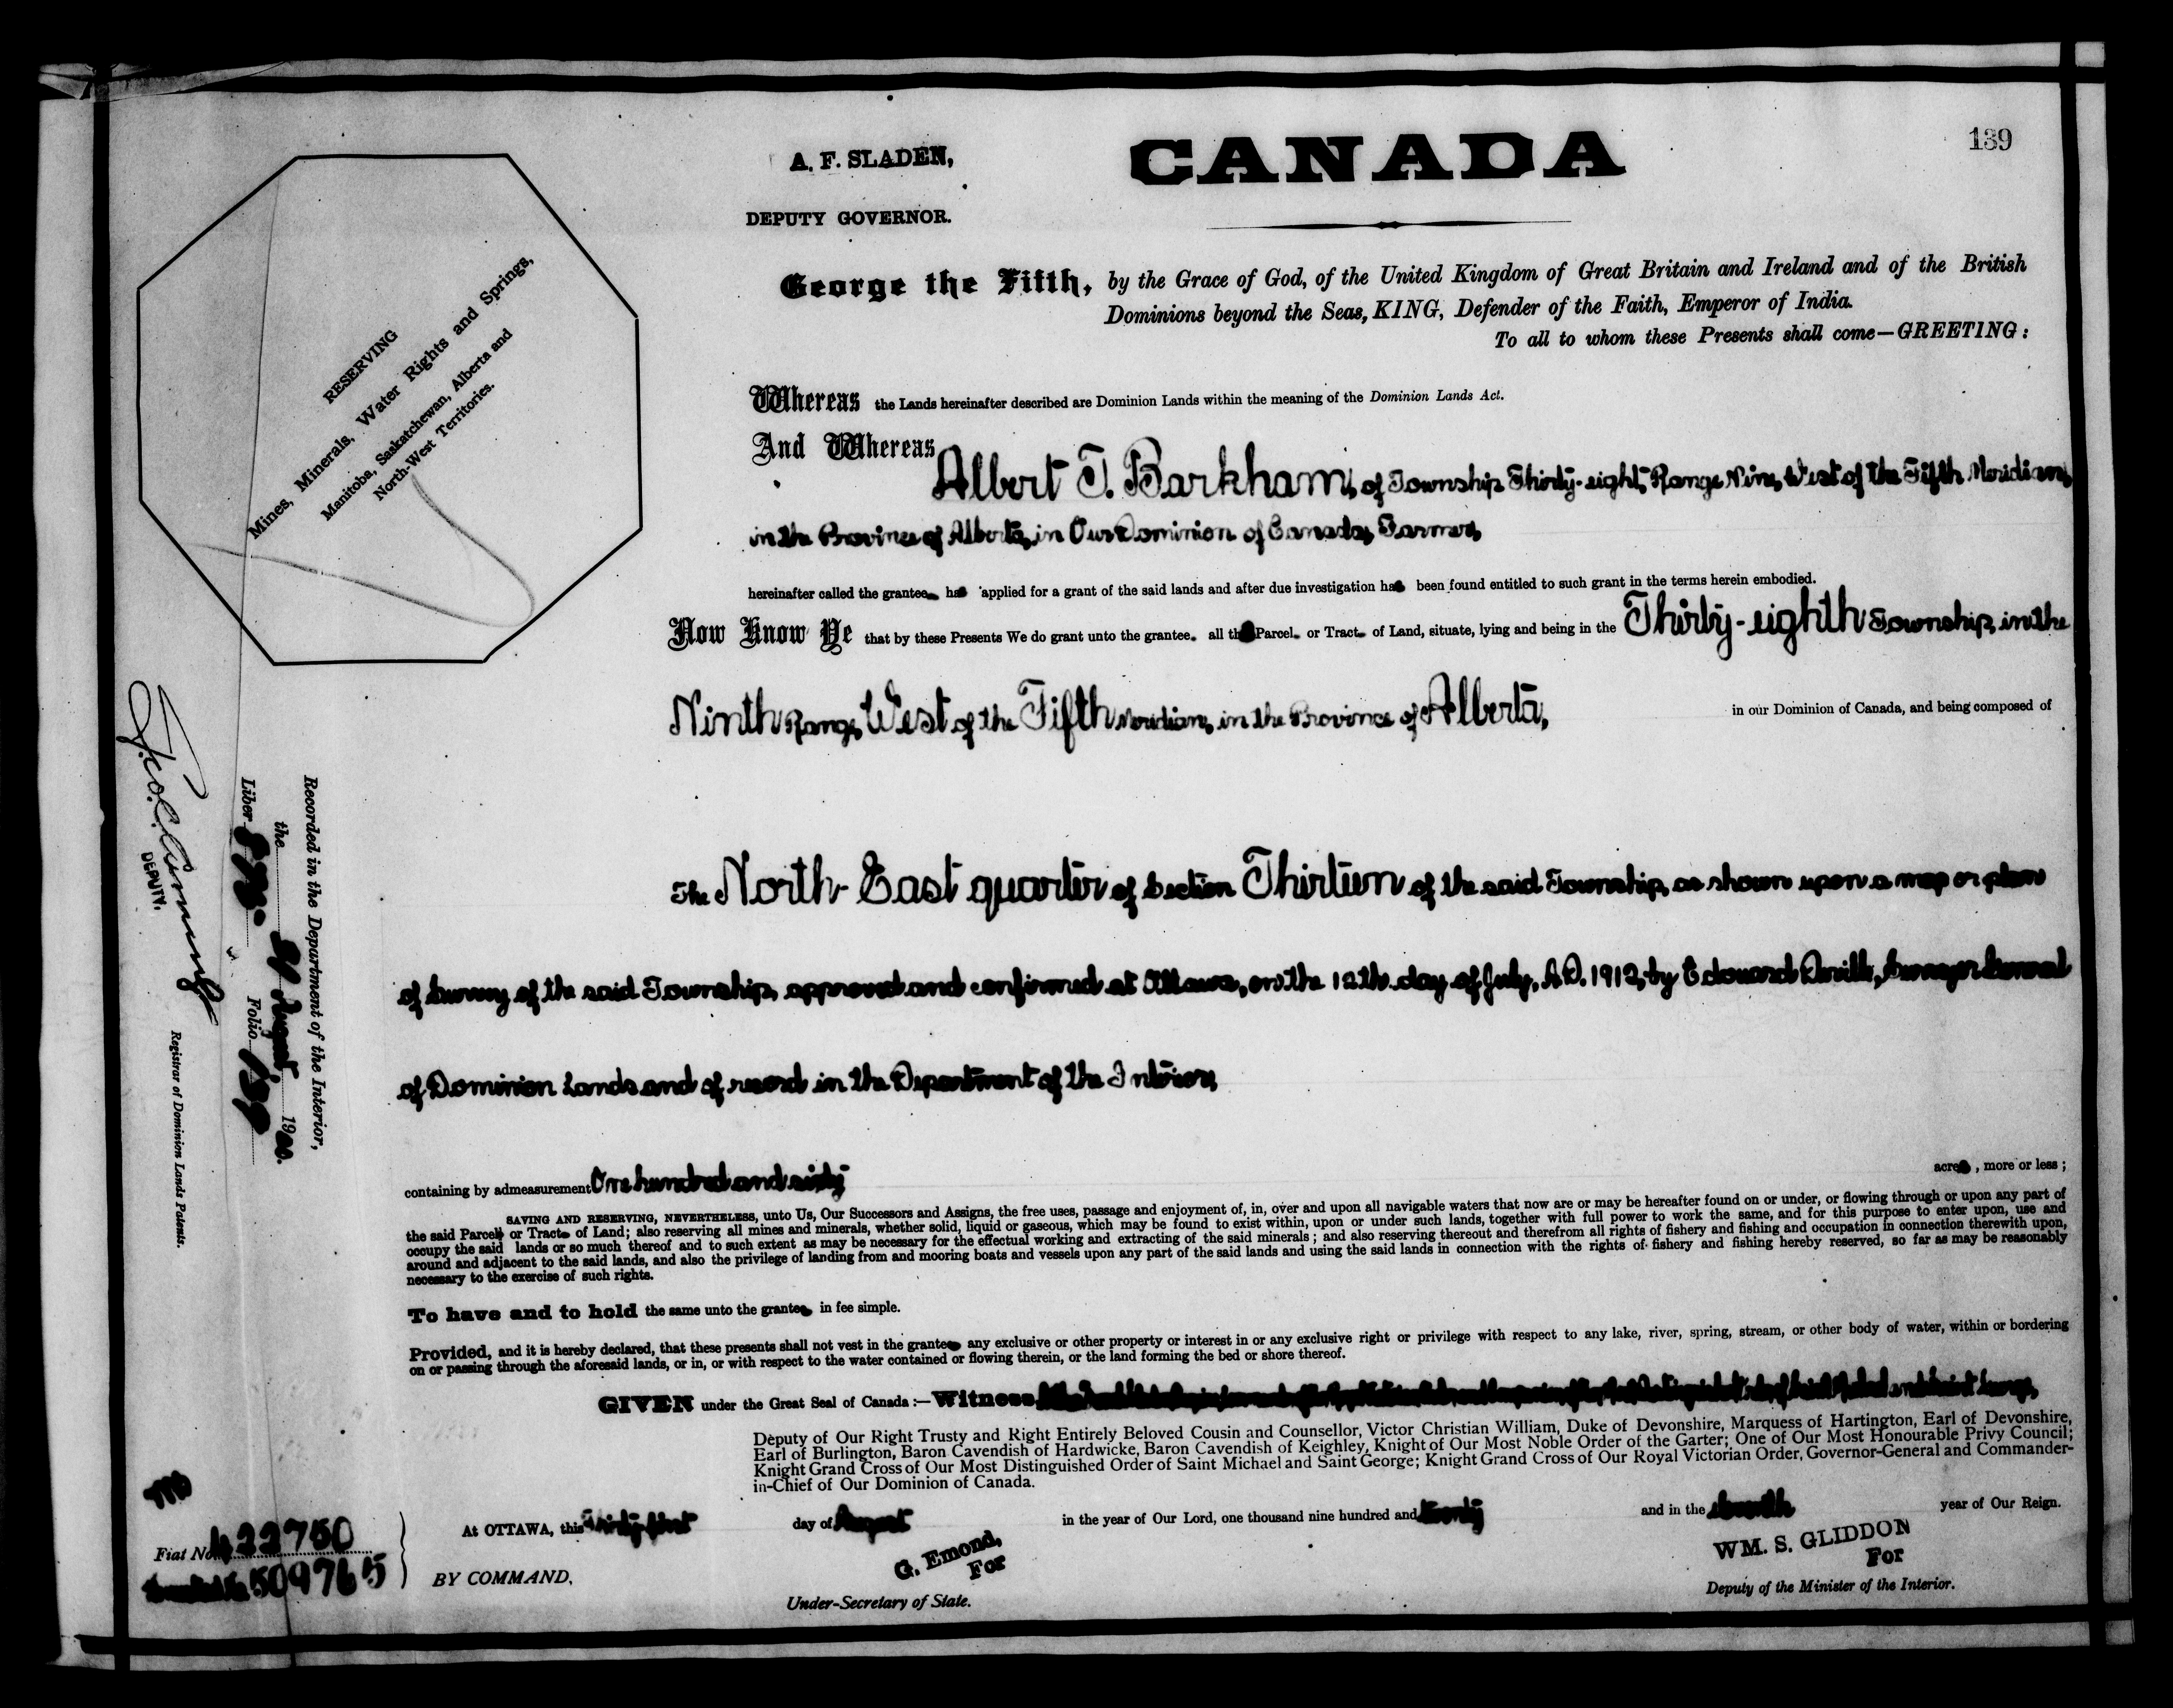 139
A. F. SLADEN,
CANADA
DEPUTY GOVERNOR.
George the Fifth, by the Grace of God, of the United Kingdom of Great Britain and Ireland and of the British
Dominions beyond the Seas, KING, Defender of the Faith, Emperor of India.
To all to whom these Presents shall come—GREETING:
RESERVING
Mines, Minerals, Water Rights and Springs,
Manitoba, Saskatchewan, Alberta and
North-West Territories.
Whereas the Lands hereinafter described are Dominion Lands within the meaning of the Dominion Lands Act.
And Whereas Albert T. Barkham, of Township Thirty-eight, Range Nine, West of the Fifth Meridian,
in the Province of Alberta, in Our Dominion of Canada, Farmer,
hereinafter called the grantee has applied for a grant of the said lands and after due investigation has been found entitled to such grant in the terms herein embodied.
Now Know Ye that by these Presents We do grant unto the grantee all that Parcel or Tract of Land, situate, lying and being in the Thirty-eighth Township, in the
Ninth Range, West of the Fifth Meridian, in the Province of Alberta, in our Dominion of Canada, and being composed of
The North-East quarter of Section Thirteen of the said Township, as shown upon a map or plan
of Survey of the said Township, approved and confirmed at Ottawa, on the 12th day of July, A.D. 1912, by Edouard Deville, Surveyor General
of Dominion Lands and of record in the Department of the Interior,
containing by admeasurement One hundred and sixty acres, more or less;
SAVING AND RESERVING, NEVERTHELESS, unto Us, Our Successors and Assigns, the free uses, passage and enjoyment of, in, over and upon all navigable waters that now are or may be hereafter found on or under, or flowing through or upon any part of
the said Parcel or Tract of Land; also reserving all mines and minerals, whether solid, liquid or gaseous, which may be found to exist within, upon or under such lands, together with full power to work the same, and for this purpose to enter upon, use and
occupy the said lands or so much thereof and to such extent as may be necessary for the effectual working and extracting of the said minerals; and also reserving thereout and therefrom all rights of fishery and fishing and occupation in connection therewith upon,
around and adjacent to the said lands, and also the privilege of landing from and mooring boats and vessels upon any part of the said lands and using the said lands in connection with the rights of fishery and fishing hereby reserved, so far as may be reasonably
necessary to the exercise of such rights.
To have and to hold the same unto the grantee in fee simple.
Provided, and it is hereby declared, that these presents shall not vest in the grantee any exclusive or other property or interest in or any exclusive right or privilege with respect to any lake, river, spring, stream, or other body of water, within or bordering
on or passing through the aforesaid lands, or in, or with respect to the water contained or flowing therein, or the land forming the bed or shore thereof.
GIVEN under the Great Seal of Canada:—Witness
Deputy of Our Right Trusty and Right Entirely Beloved Cousin and Counsellor, Victor Christian William, Duke of Devonshire, Marquess of Hartington, Earl of Devonshire,
Earl of Burlington, Baron Cavendish of Hardwicke, Baron Cavendish of Keighley, Knight of Our Most Noble Order of the Garter; One of Our Most Honourable Privy Council;
Knight Grand Cross of Our Most Distinguished Order of Saint Michael and Saint George; Knight Grand Cross of Our Royal Victorian Order, Governor-General and Commander-
in-Chief of Our Dominion of Canada.
At OTTAWA, this thirty-first day of August in the year of Our Lord, one thousand nine hundred and twenty and in the eleventh year of Our Reign.
BY COMMAND,
G. Emond,
For
Under-Secretary of State.
WM. S. GLIDDON
For
Deputy of the Minister of the Interior.
Recorded in the Department of the Interior,
the 31 August 1920.
Liber Folio 139
DEPUTY.
Registrar of Dominion Lands Patents.
Fiat No. 422750
509765